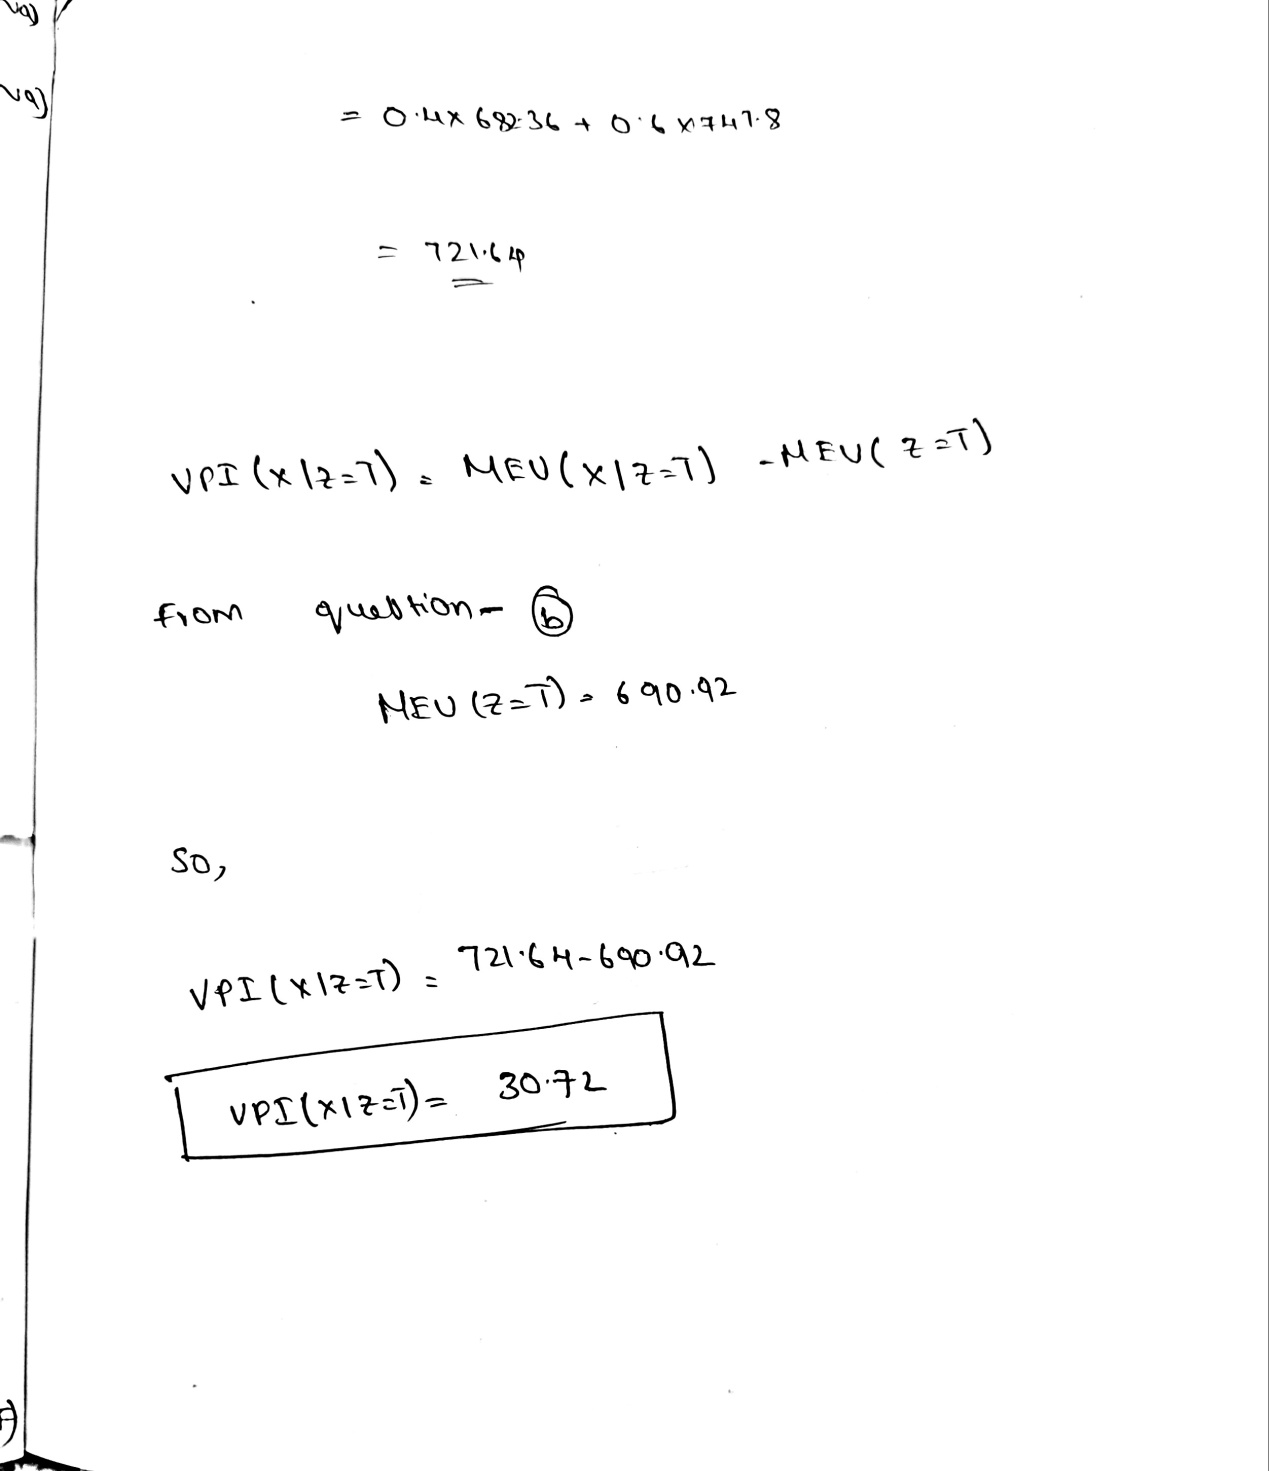 va)
va)
= 0.4x 682.36 + 0.6 x 747.8
= 721.64
VPI (x|z=T) = MEU(x|z=T) - MEU( z=T)
from question - (b)
MEU (z=T) = 690.92
so,
VPI(x|z=T) = 721.64-690.92
VPI(x|z=T)= 30.72